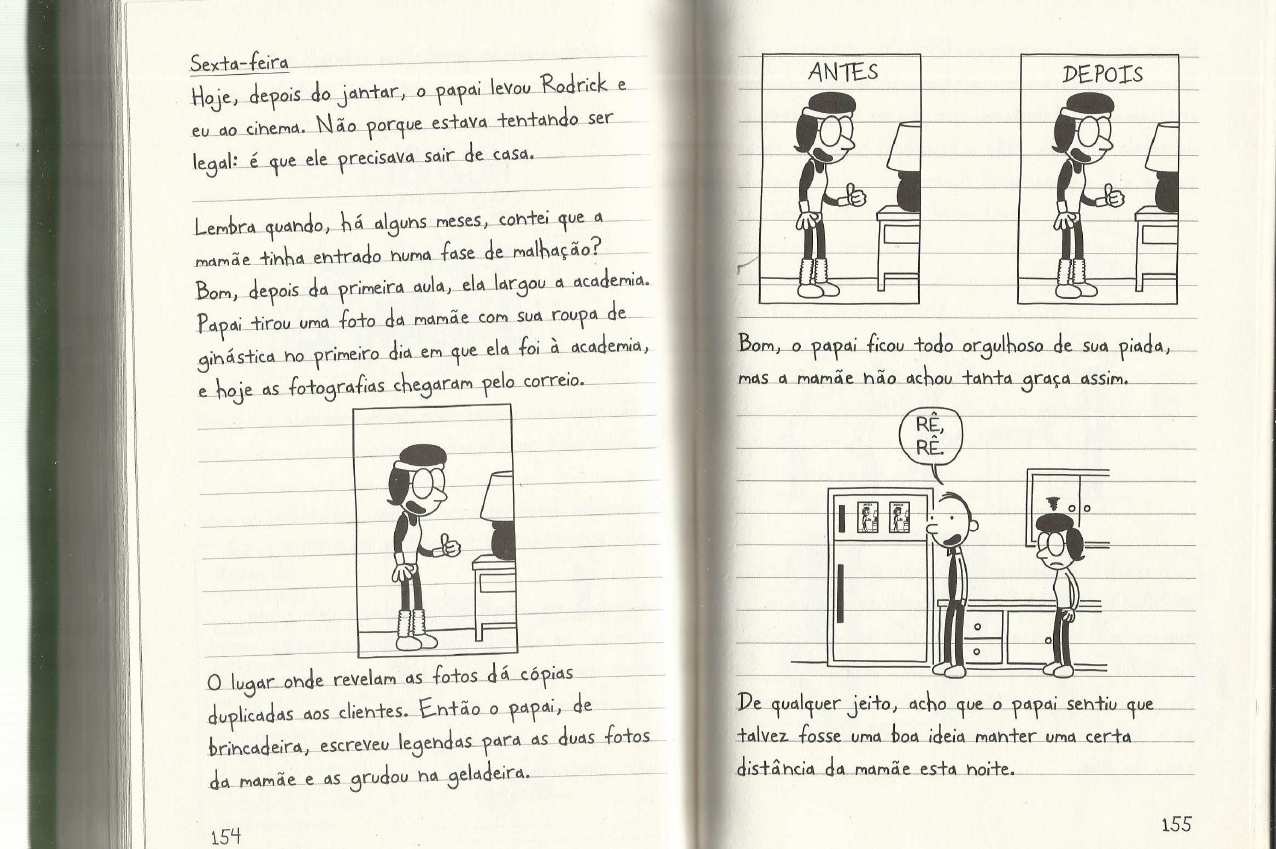 Sexta-feira
Hoje, depois do jantar, o papai levou Rodrick e
eu ao cinema. Não porque estava tentando ser
legal: é que ele precisava sair de casa.
Lembra quando, há alguns meses, contei que a
mamãe tinha entrado numa fase de malhação?
Bom, depois da primeira aula, ela largou a academia.
Papai tirou uma foto da mamãe com sua roupa de
ginástica no primeiro dia em que ela foi à academia,
e hoje as fotografias chegaram pelo correio.
O lugar onde revelam as fotos dá cópias
duplicadas aos clientes. Então o papai, de
brincadeira, escreveu legendas para as duas fotos
da mamãe e as grudou na geladeira.
154
ANTES
DEPOIS
Bom, o papai ficou todo orgulhoso de sua piada,
mas a mamãe não achou tanta graça assim.
RÊ,
RÊ.
De qualquer jeito, acho que o papai sentiu que
talvez fosse uma boa ideia manter uma certa
distância da mamãe esta noite.
155